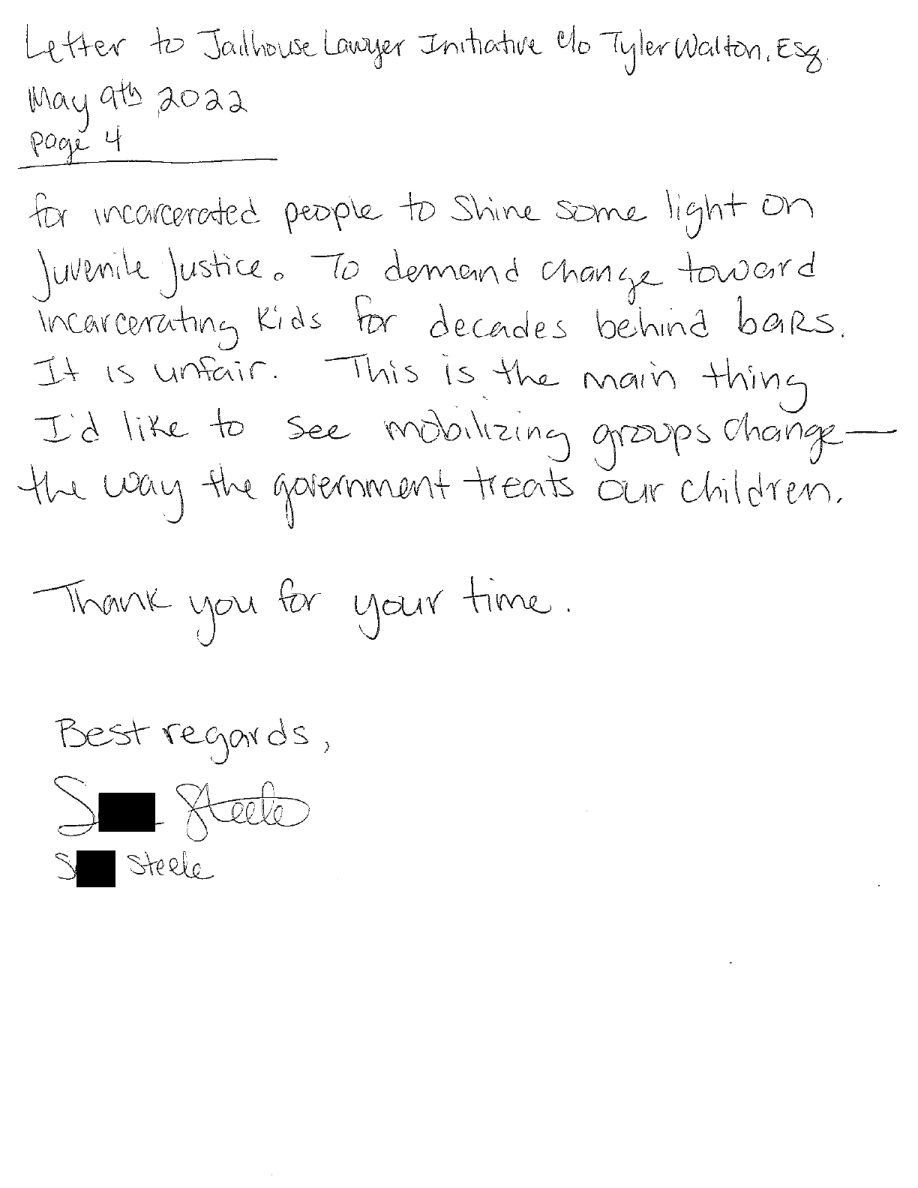 Letter to Jailhouse Lawyer Initiative c/o Tyler Walton, Esq.
May 9th, 2022
page 4
for incarcerated people to shine some light on
Juvenile Justice. To demand change toward
incarcerating kids for decades behind bars.
It is unfair. This is the main thing
I'd like to see mobilizing groups change—
the way the government treats our children.
Thank you for your time.
Best regards,
S Steele
S Steele